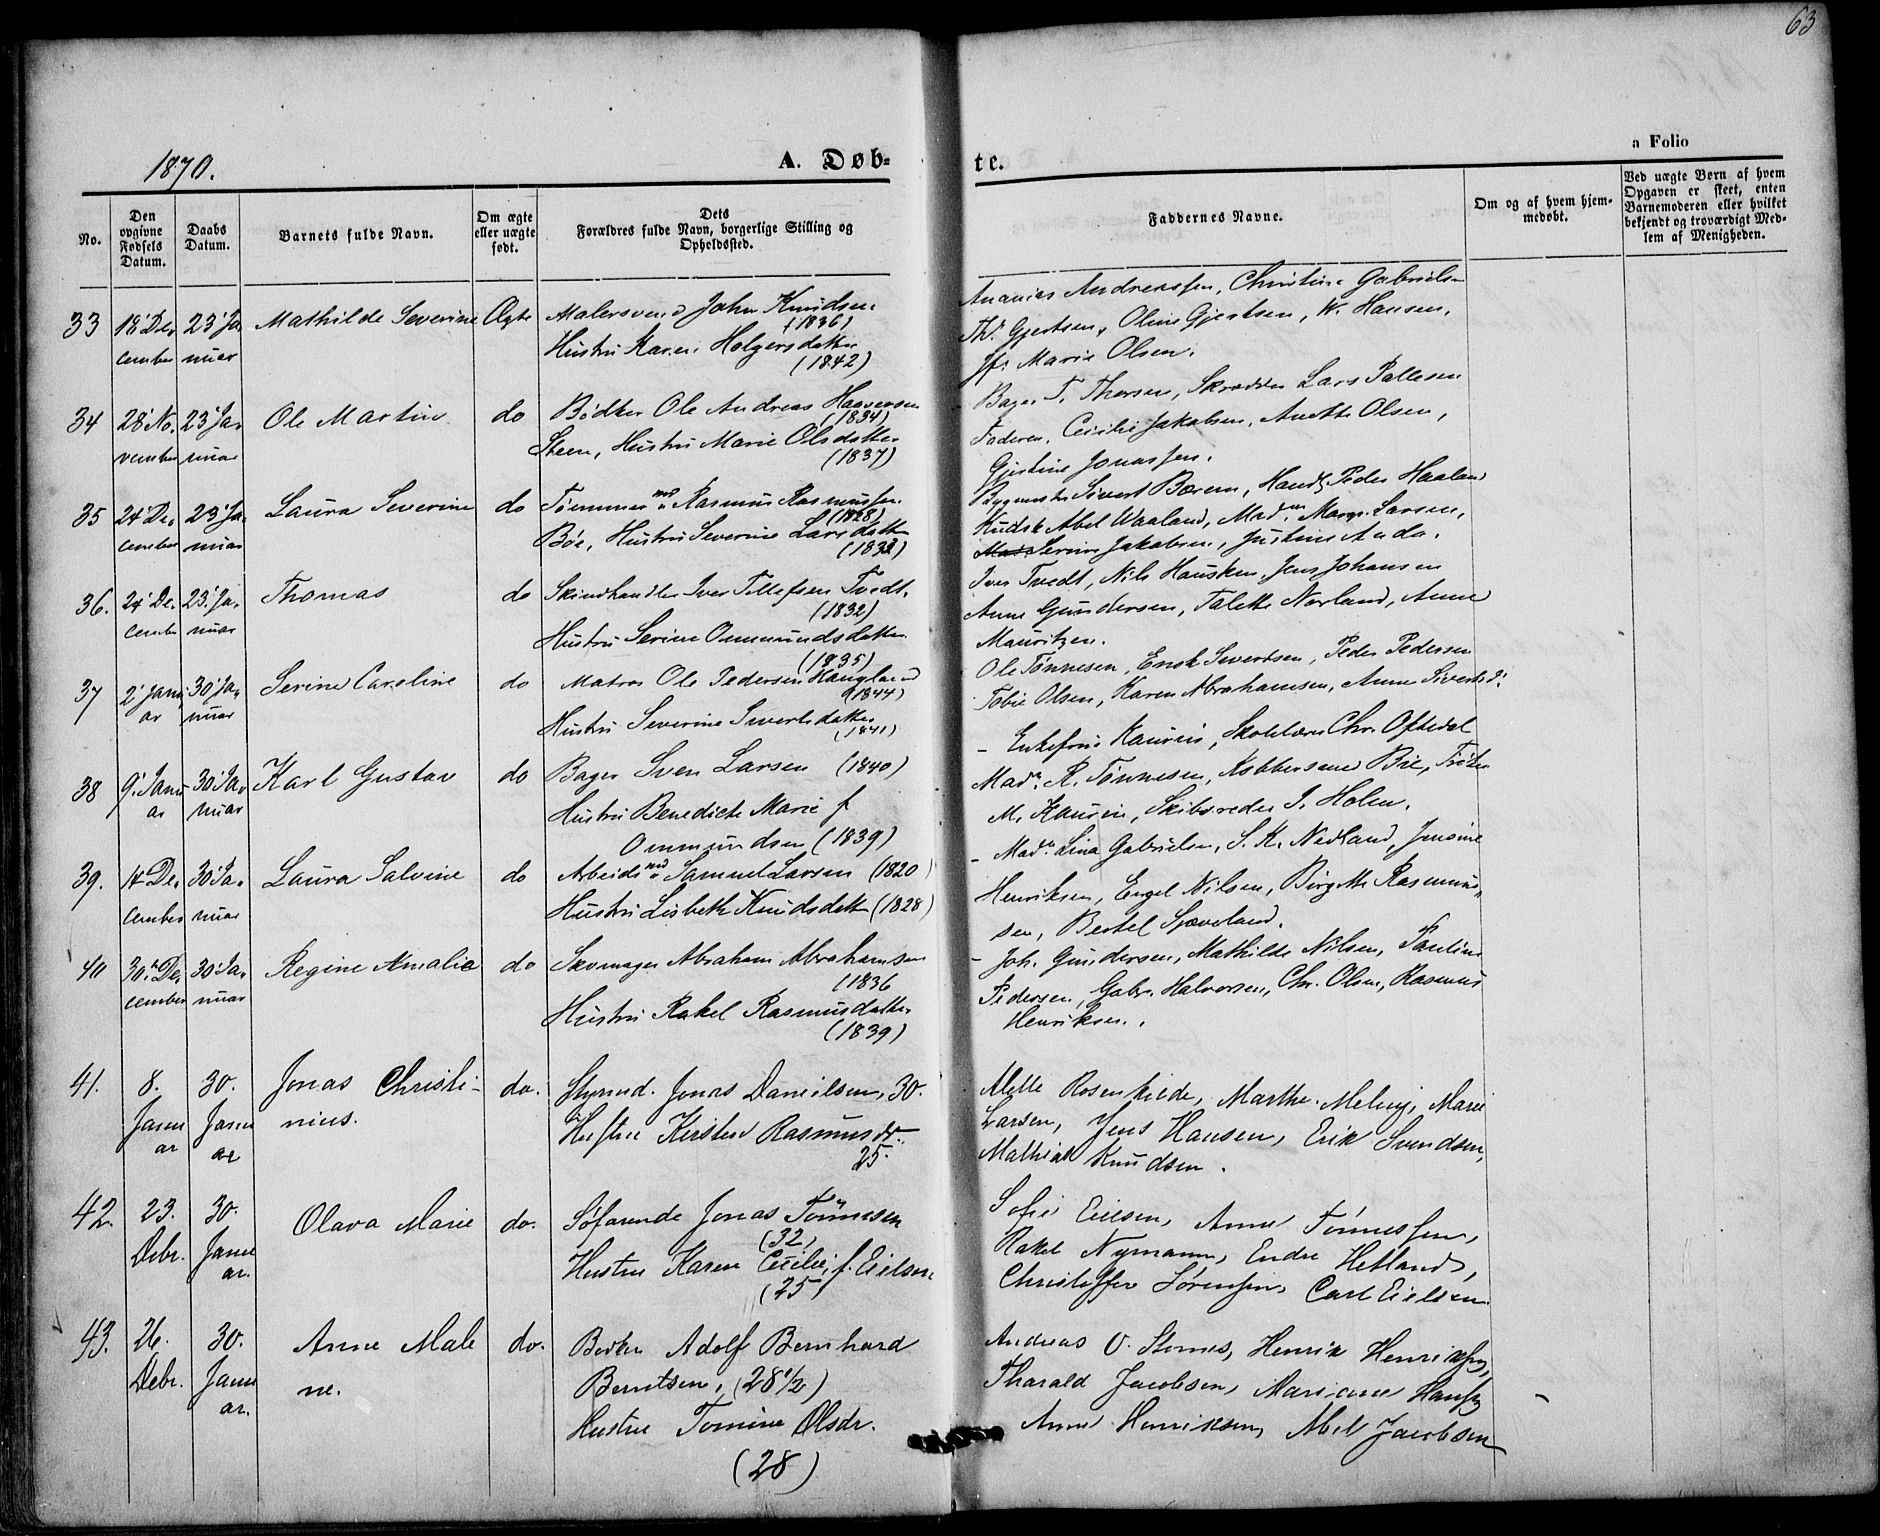 63
1870.
A. Døb-
te.
a Folio
No.
Den opgivne Fødsels Datum.
Daabs Datum.
Barnets fulde Navn.
Om ægte eller uægte født.
Dets Forældres fulde Navn, borgerlige Stilling og Opholdssted.
Faddernes Navne.
Om og af hvem hjemmedøbt.
Ved uægte Børn af hvem Opgaven er skeet, enten Barnemoderen eller hvilket bekjendt og troværdigt Medlem af Menigheden.
33 18' De- 23' Ja Mathilde Severine Ægte Malersvend John Knudsen
cember nuar (1836)
Hustru Karen Holgersdatter
(1842)
Ananias Andreassen, Christine Gabrielsen
Th. Gjertsen, Oline Gjertsen, W. Hansen,
Jfr Marie Olsen.
34 28' No- 23' Ja- Ole Martin do Bødker Ole Andreas Haaversen
vember nuar (1834)
Steen, Hustru Marie Olsdatter
(1837)
Bager T. Thorsen, Skrædder Lars Pallesen
Faderen, Cecilie Jakobsen, Anette Olsen,
Gjertine Jonassen.
35 24' De- 23' Ja- Laura Severine do Tømmermd Rasmus Rasmussen
cember nuar (1828)
Bøe, Hustru Severine Larsdatter
Sivert Bærem, Peder Haaland
Kudsk Abel Waaland, Mad. Larsen,
Serine Jakobsen, Justine Auda.
36. 24' De- 23' Ja- Thomas do Skindhandler Iver Tollefsen Tvedt,
cember nuar (1832)
Hustru Serine Ommundsdatter
(1835)
Iver Tvedt, Nils Hausken, Jens Johansen
Anne Gundersen, Talette Norland, Anne
Mauritzen.
37 2' Janu- 30' Ja- Serine Caroline do Matros Ole Pedersen Haugland
ar nuar (1844)
Hustru Severine Sivertsdatter
(1841)
Ole Tønnesen, Enok Sivertsen, Peder Pedersen
Tobie Olsen, Karen Abrahamsen, Anne Sivertsd.
38 9' Janu- 30' Ja- Karl Gustav do Bager Sven Larsen (1840)
ar nuar Hustru Benedicte Marie f
Ommundsen (1839)
- Enkefrue Kaurin, Skolelærer Chr. Oftedal
Mad. R. Tønnesen, Kobbersmed Bie, Frøken
M. Kaurin, Skibsreder I. Holen.
39. 14' De- 30' Ja- Laura Salvine do Arbeidsmd Samuel Larsen (1820)
cember nuar Hustru Lisbeth Knudsdatter (1828)
- Mad. Lina Gabrielsen, S. K. Nedland, Jensine
Henriksen, Engel Nilsen, Birgitte Rasmus-
sen, Bertel Sjæveland.
40 30' De- 30' Ja- Regine Amalie do Skomager Abraham Abrahamsen
cember nuar (1836
Hustru Rakel Rasmusdatter
(1839)
- Joh. Gundersen, Mathilde Nilsen, Pauline
Pedersen, Gabr. Halvorsen, Chr. Olsen, Rasmus
Henriksen.
41. 8. 30. Jonas Christi- do. Styrmd. Jonas Danielsen, 30.
Janu Janu nius. Hustru Kirsten Rasmusdr.
ar ar 25.
Mette Rosenkilde, Marthe Meling, Marie
Larsen, Jens Hansen, Erik Svendsen,
Mathias Knudsen.
42. 23. 30. Olava Marie do. Søfarende Jonas Tønnesen
Debr. Janu (32)
ar. Hustru Karen Cecilie, f. Eielsen
(25)
Sofie Eielsen, Anne Tønnessen,
Rakel Nymann, Endre Hetland,
Christoffer Sørensen, Carl Eielsen.
43. 26. 30. Anne Male do. Bødker Adolf Bernhard
Debr. Janu ne. Berntsen, (28 1/2)
ar. Hustru Tomine Olsdr.
(28)
Andreas O. Stornes, Henrik Henriksen,
Tharald Jacobsen, Mariane Hansen
Anne Henriksen, Abel Jacobsen